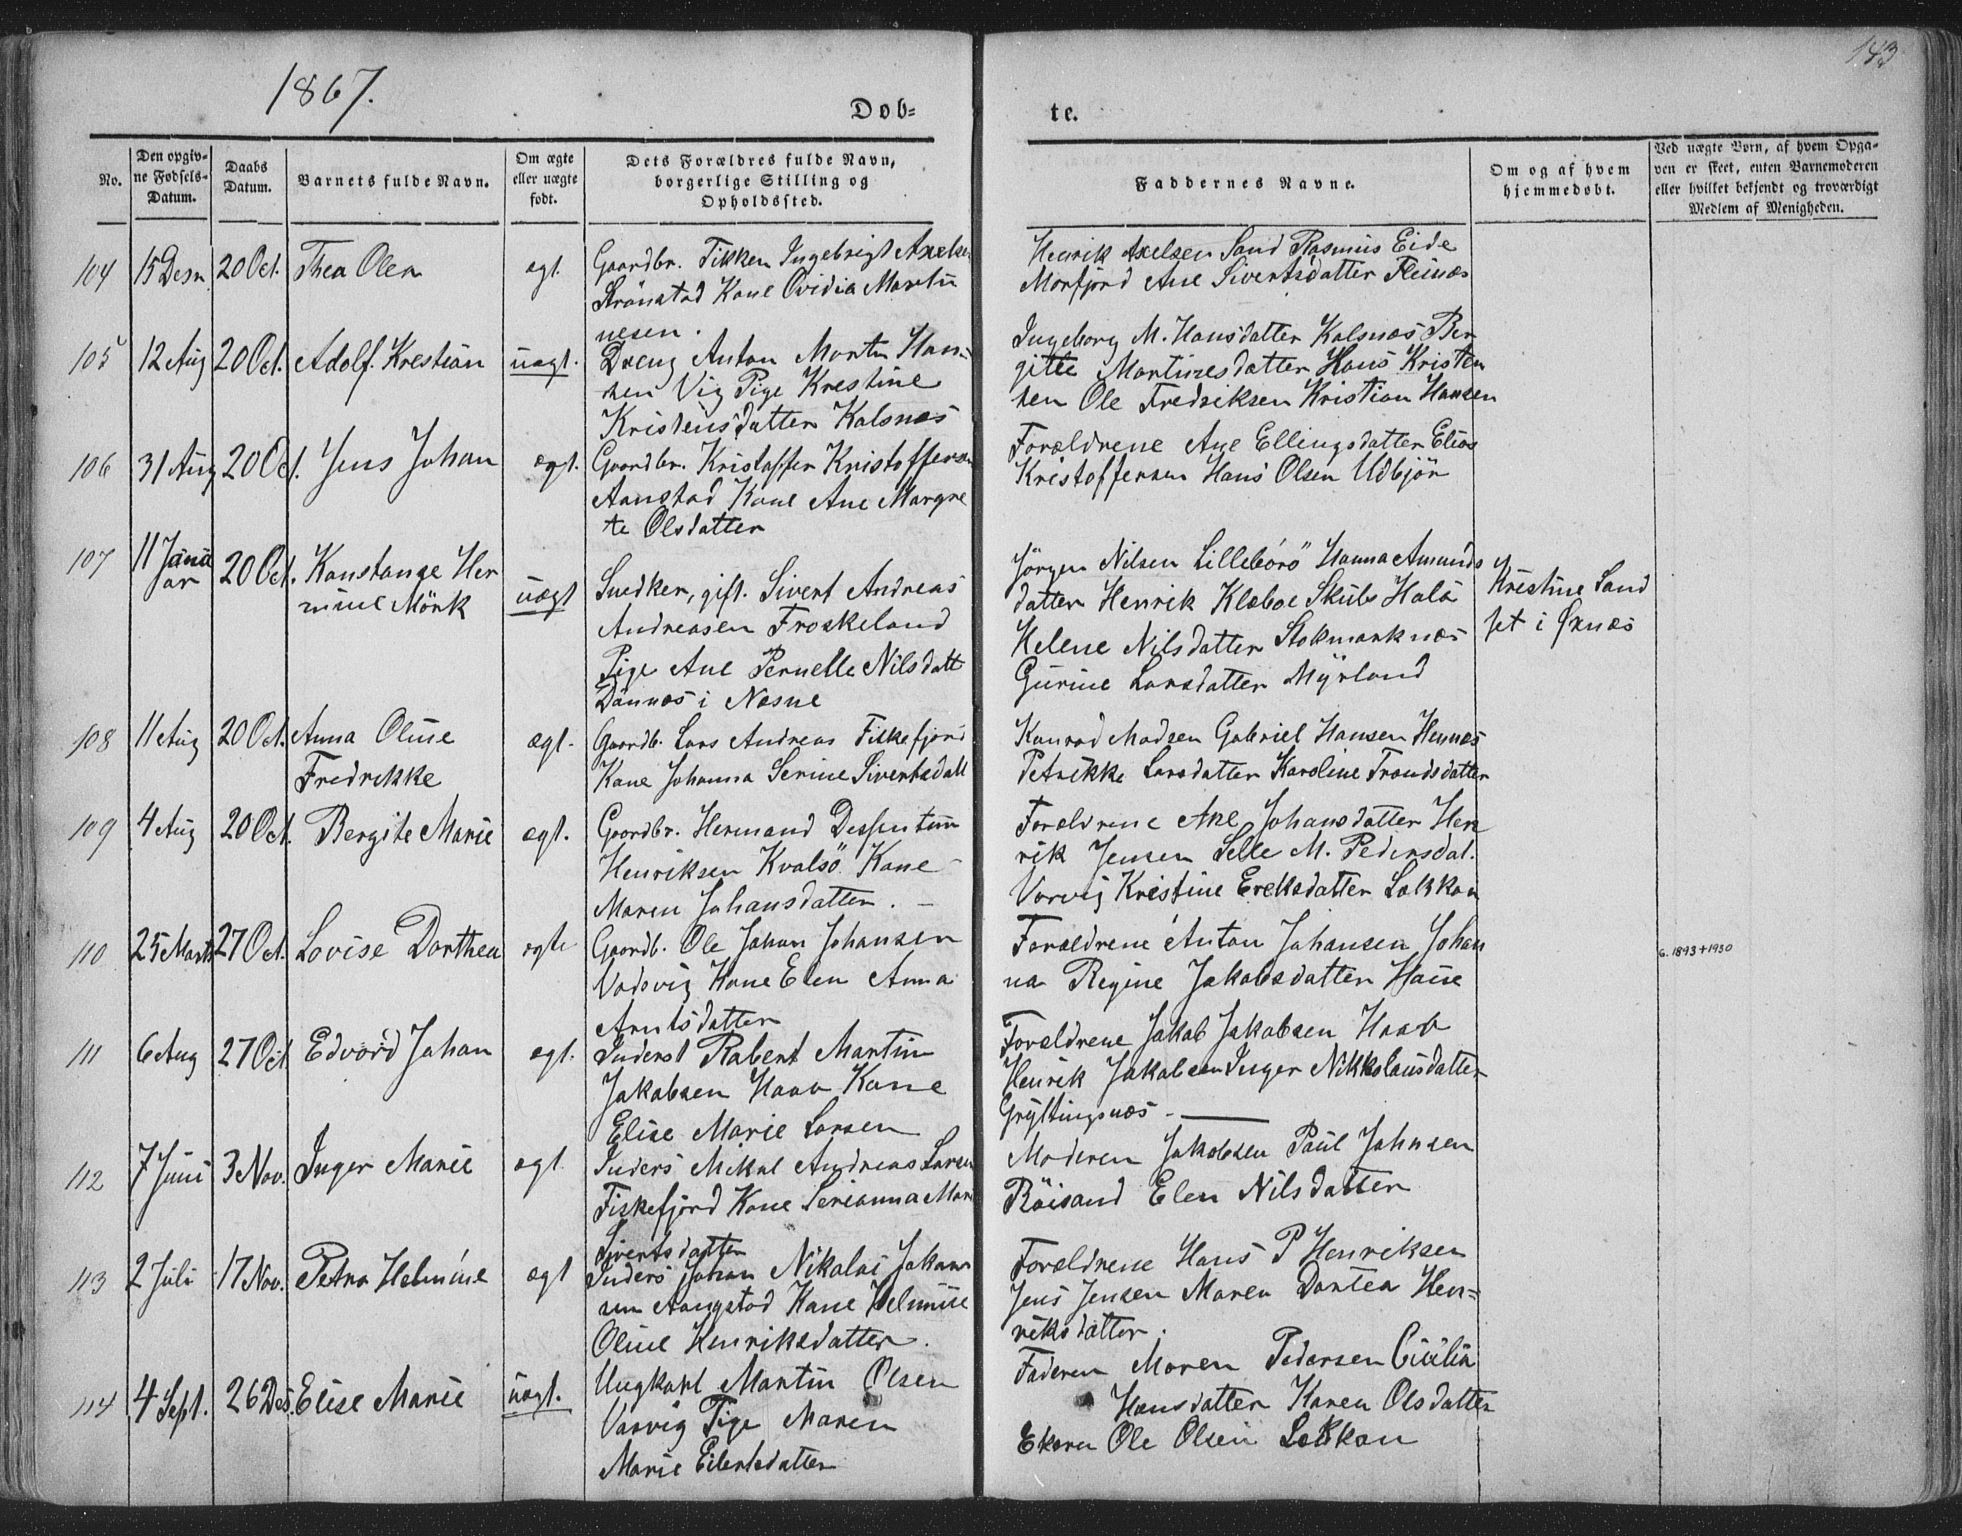 1867.
143
Døb=
te.
No.
Den opgiv-
ne Fødsels-
Datum.
Daabs
Datum.
Barnets fulde Navn.
Om ægte
eller uægte
født.
Dets Forældres fulde Navn,
borgerlige Stilling og
Opholdssted.
Faddernes Navne.
Om og af hvem
hjemmedøbt.
Ved uægte Børn, af hvem Opga-
ven er skeet, enten Barnemoderen
eller hvilket bekjendt og troværdigt
Medlem af Menigheden.
104 15 Desr 20 Oct. Thea Olea ægt.
Gaardbr. Fikken Ingebrigt Axelsen
Strønstad Kone Ovidia Martin
nesen.
Henrik Axelsen Sand Rasmus Eide
Morfjord Ane Sivertsdatter Fleinæs
105 12 Aug 20 Oct. Adolf Krestian uægt.
Dreng Anton Martin Han-
sen Vig Pige Krestine
Kristensdatter Kalsnæs
Ingeborg M. Hansdatter Kalsnæs Ber
gitte Martinesdatter Hans Kristen
sen Ole Fredriksen Kristian Hansen
106 31 Aug 20 Oct. Jens Johan ægt.
Gaardbr. Kristoffer Kristoffersen
Aanstad Kone Ane Margre
te Olsdatter
Forældrene Ane Ellingsdatter Elias
Kristoffersen Hans Olsen Udbjør
107 11 Janu
ar 20 Oct. Konstanse Her
mine Mörk uægt
Snedker, gift. Sivert Andreas
Andreasen Froskeland
Pige Ane Pernelle Nilsdatt
Dønnæs i Næsne
Jörgen Nilsen Lilleborö Hanna Amunds
datter Henrik Klæboe Skuls Hals
Helene Nilsdatter Stokmarknæs
Gurine Larsdatter Myrland
Kristine Sand
set i Øxnæs
108 11 Aug 20 Oct. Anna Oline
Fredrikke ægt.
Gaardb. Lars Andreas Fiskefjord
Kone Johanna Serine Sivertsdatt
Konrad Madsen Gabriel Hansen Hennes
Petrikke Larsdatter Karoline Trondsdatter
109 4 Aug 20 Oct. Bergite Marie ægt.
Gaardbr. Hermand
Henriksen Kvalsö Kone
Maren Johansdatter.
Forældrene Ane Johansdatter Hen
rik Jensen M. Pedersdat.
Vorvig Kristine Ereksdatter Løkkan
110 25 Marts 27 Oct. Lovise Dorthea ægte
Gaardb. Ole Johan Johansen
Vadsvig Kone Elen Anna
Arntsdatter
Forældrene Anton Johansen Johan
na Regine Jakobsdatter Haüe
G. 1893 + 1930
111 6 Aug 27 Oct Edvard Johan ægt.
Inderst Robert Martin
Jakobsen Haav Kone
Elise Marie Larsen
Forældrene Jakob Jakobsen Haav
Henrik Jakobsen Inger Nikkolausdatter
Gryttingsnæs
112 7 Juni 3 Nov. Inger Marie ægt
Inders Mikal Andreas Larsen
Fiskefjord Kone Serianna Mar
Sivertsdatter
Moderen Jakobsen Paul Johnsen
Röisand Elen Nilsdatter
113 2 Juli 17 Nov. Petra Helmine ægt
Inders Johan Nikolai Johan
sen Aangstad Kone Helmine
Oline Henriksdatter.
Forældrene Hans P Henriksen
Jens Jensen Maren Dortea Hen=
reksdatter.
114 4 Sept. 26 Des. Elise Marie uægt.
Ungkarl Martin Olsen
Varvig Pige Maren
Marie Eilertsdatter
Faderen Maren Pedersen Cicilia
Hansdatter Karen Olsdatter
Ekren Ole Olsen Løkkan